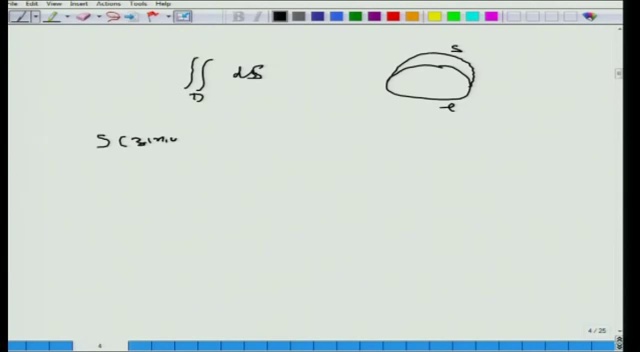 File Edit View Insert Actions Tools Help
B I
∬ dS
D
S
S (
4 / 25